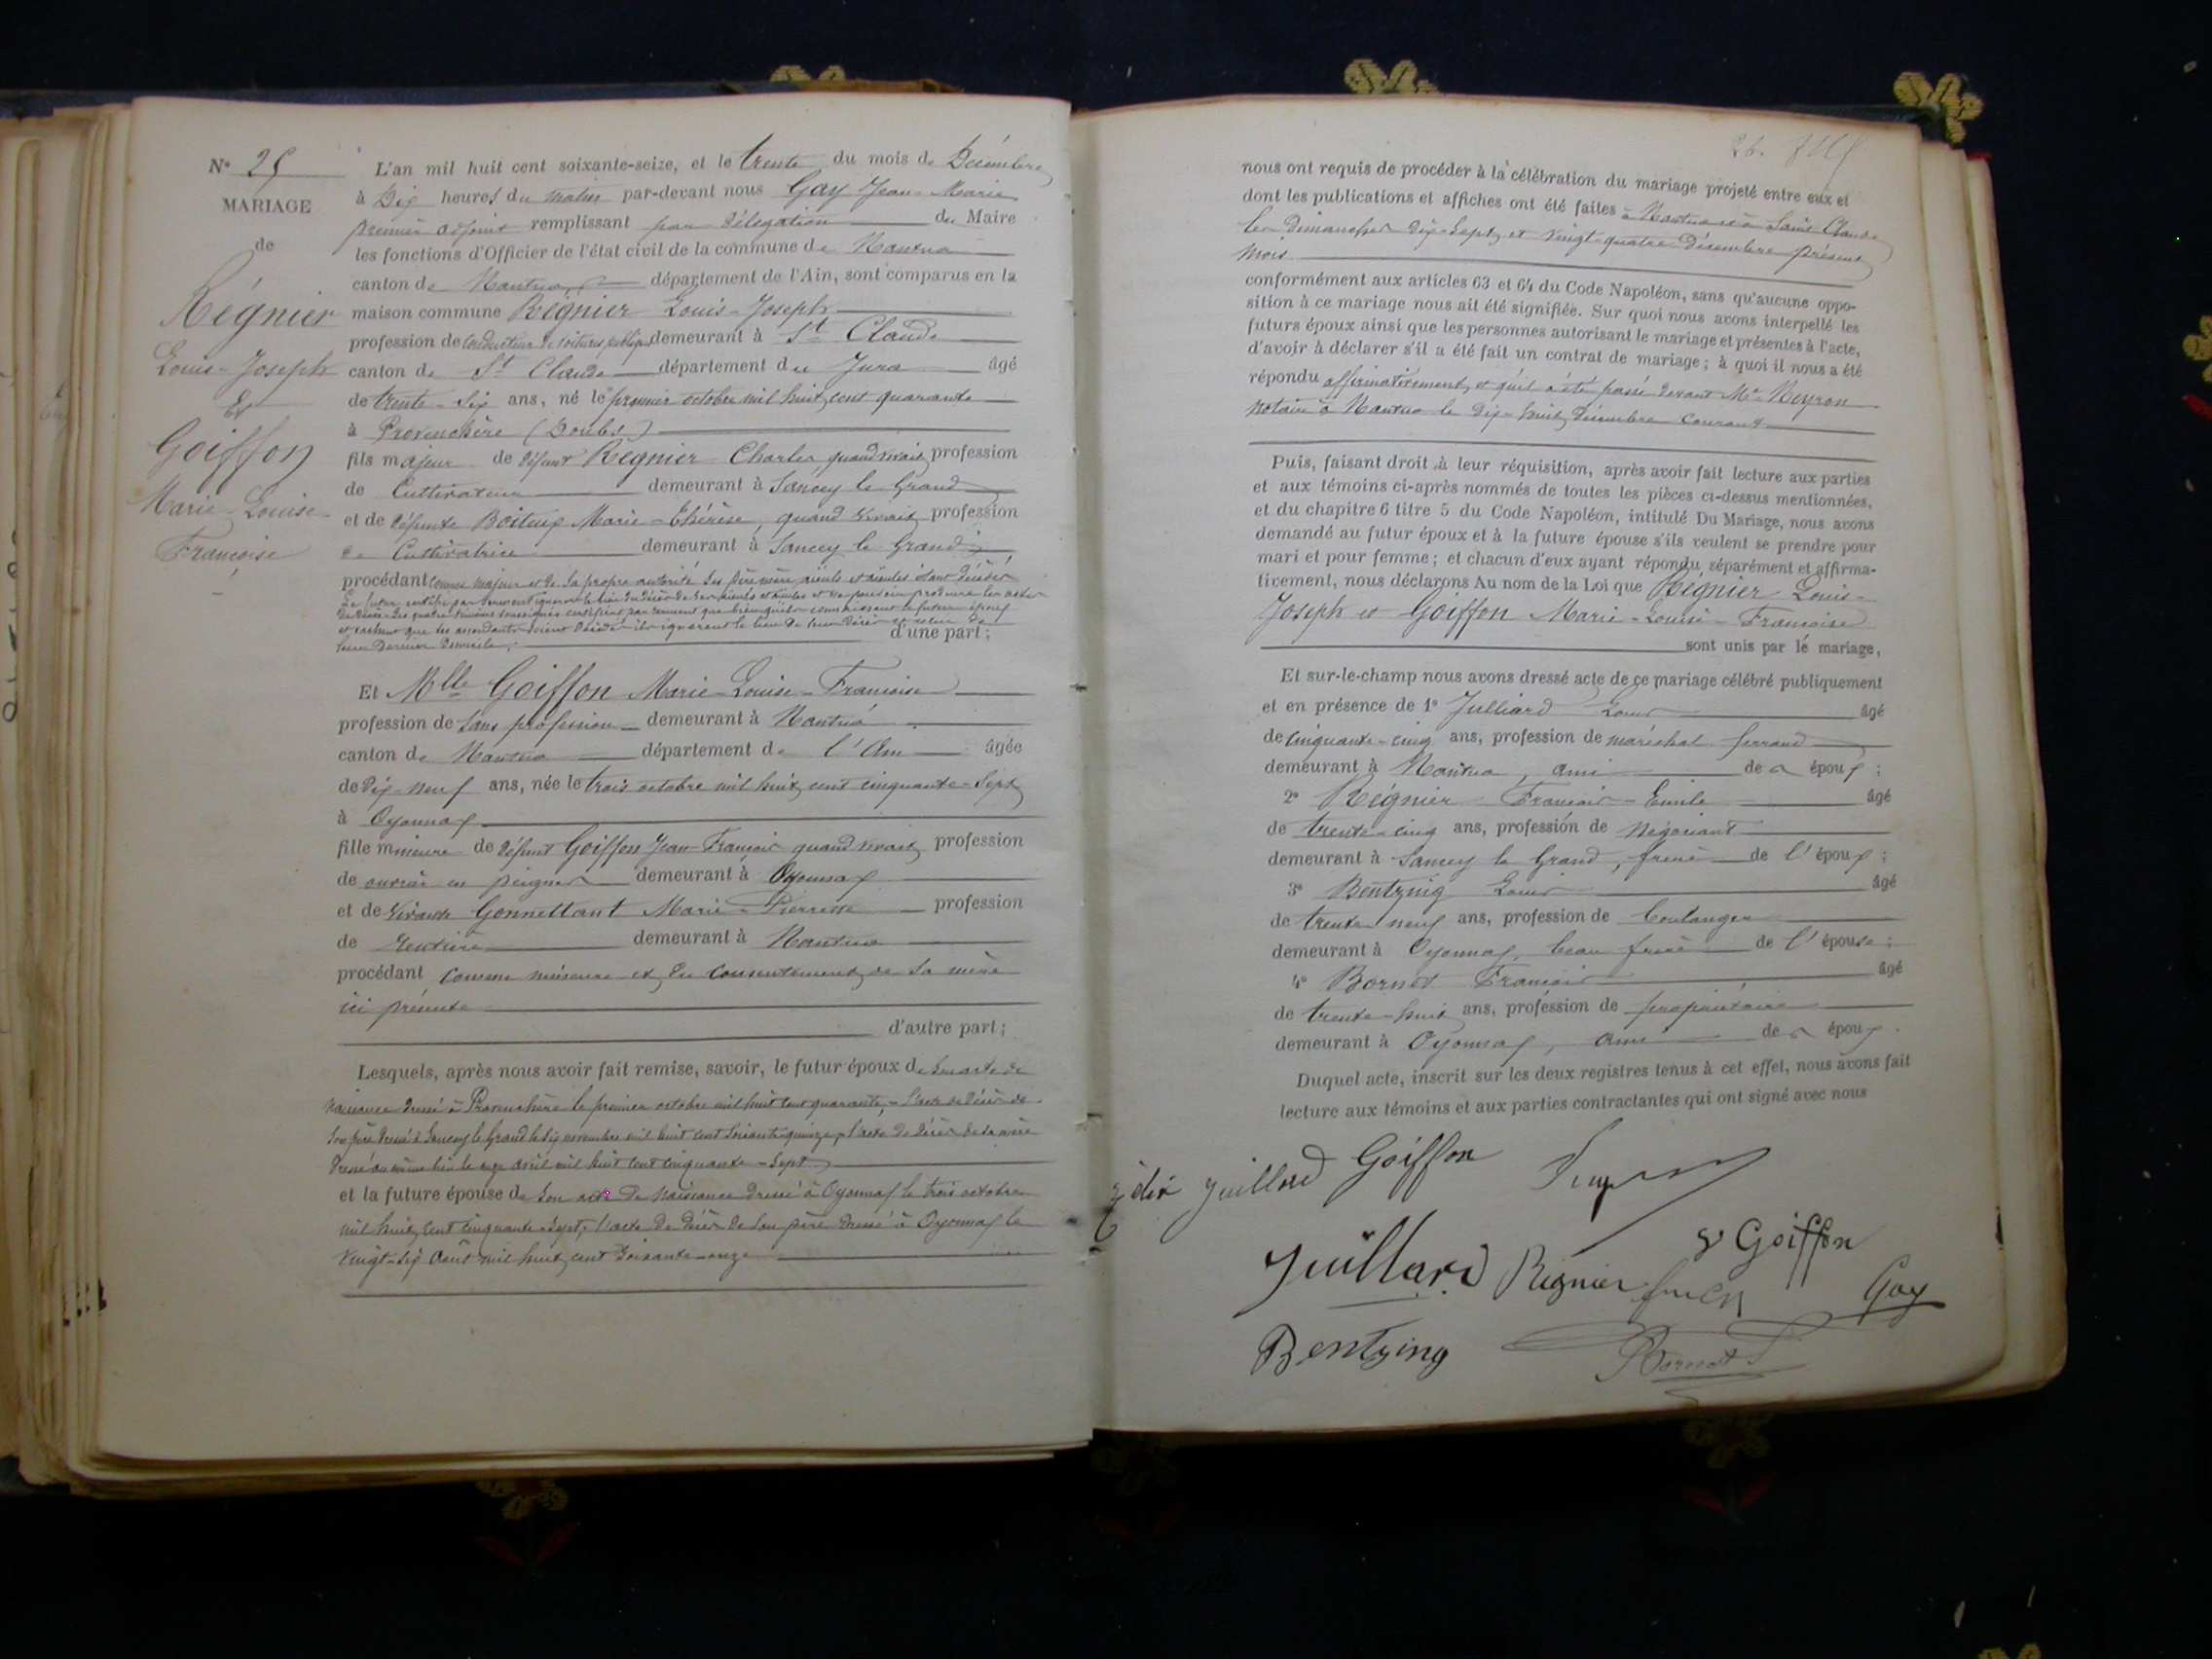 N° 25
MARIAGE
de
Régnier
Louis-Joseph
Et
Goiffon
Marie-Louise-
Françoise
L'an mil huit cent soixante-seize, et le trente du mois de Décembre
à Dix heures du matin par-devant nous Gay Jean-Marie
premier adjoint remplissant par délégation du Maire
les fonctions d'Officier de l'état civil de la commune de Nantua
canton de Nantua département de l'Ain, sont comparus en la
maison commune Régnier Louis-Joseph
profession de Conducteur de voitures publiques demeurant à St Claude
canton de St Claude département du Jura âgé
de trente-six ans, né le premier octobre mil huit cent quarante
à Provenchère (Doubs)
fils majeur de défunt Régnier Charles quand vivait profession
de Cultivateur demeurant à Sancey le Grand
et de défunte Marie-Thérèse, quand vivait profession
de Cultivatrice demeurant à Sancey le Grand
procédant comme majeur et de sa propre autorité ses père mère aïeuls et aïeules étant décédés
Le futur certifie par serment ignorer le lieu du décès de ses aïeuls et aïeules et ne pouvoir produire les actes
de décès. Les quatre témoins soussignés certifient par serment que bien qu'ils connaissent le futur époux
et sachent que ses ascendants soient décédés ils ignorent le lieu de leur décès et celui de
leur dernier domicile; d'une part;
Et Mlle Goiffon Marie-Louise-Françoise
profession de sans profession demeurant à Nantua
canton de Nantua département de l'Ain âgée
de dix-neuf ans, née le trois octobre mil huit cent cinquante-sept
à Oyonnax
fille mineure de défunt Goiffon Jean-François quand vivait profession
de ouvrier en peignes demeurant à Oyonnax
et de vivante Gonnettant Marie-Pierrette profession
de rentière demeurant à Nantua
procédant comme mineure et du consentement de sa mère
ici présente
d'autre part;
Lesquels, après nous avoir fait remise, savoir, le futur époux de son acte de
naissance dressé à Provenchère le premier octobre mil huit cent quarante, l'acte de décès de
son père dressé à Sancey le Grand le dix novembre mil huit cent soixante quinze, l'acte de décès de sa mère
dressé au même lieu le onze avril mil huit cent cinquante-sept
et la future épouse de son acte de naissance dressé à Oyonnax le trois octobre
mil huit cent cinquante-sept, l'acte de décès de son père dressé à Oyonnax le
vingt-six août mil huit cent soixante-onze
26.
nous ont requis de procéder à la célébration du mariage projeté entre eux et
dont les publications et affiches ont été faites à Nantua et à Saint-Claude
les Dimanches dix-sept et vingt-quatre décembre présent
mois
conformément aux articles 63 et 64 du Code Napoléon, sans qu'aucune oppo-
sition à ce mariage nous ait été signifiée. Sur quoi nous avons interpellé les
futurs époux ainsi que les personnes autorisant le mariage et présentes à l'acte,
d'avoir à déclarer s'il a été fait un contrat de mariage; à quoi il nous a été
répondu affirmativement, et qu'il a été passé devant Me Neyron
notaire à Nantua le dix-huit décembre courant
Puis, faisant droit à leur réquisition, après avoir fait lecture aux parties
et aux témoins ci-après nommés de toutes les pièces ci-dessus mentionnées,
et du chapitre 6 titre 5 du Code Napoléon, intitulé Du Mariage, nous avons
demandé au futur époux et à la future épouse s'ils veulent se prendre pour
mari et pour femme; et chacun d'eux ayant répondu séparément et affirma-
tivement, nous déclarons Au nom de la Loi que Régnier Louis-
Joseph et Goiffon Marie-Louise-Françoise
sont unis par le mariage,
Et sur-le-champ nous avons dressé acte de ce mariage célébré publiquement
et en présence de 1° Julliard Louis âgé
de cinquante-cinq ans, profession de maréchal ferrand
demeurant à Nantua, ami de l'époux;
2° Régnier François-Emile âgé
de trente-cinq ans, profession de Négociant
demeurant à Sancey le Grand, frère de l'époux;
3° Bentzing Louis âgé
de trente-neuf ans, profession de boulanger
demeurant à Oyonnax, beau frère de l'épouse;
4° Bornet François âgé
de trente-huit ans, profession de propriétaire
demeurant à Oyonnax, ami de l'époux.
Duquel acte, inscrit sur les deux registres tenus à cet effet, nous avons fait
lecture aux témoins et aux parties contractantes qui ont signé avec nous
Goiffon
Goiffon
Juillard Régnier Gay
Bentzing Bornet